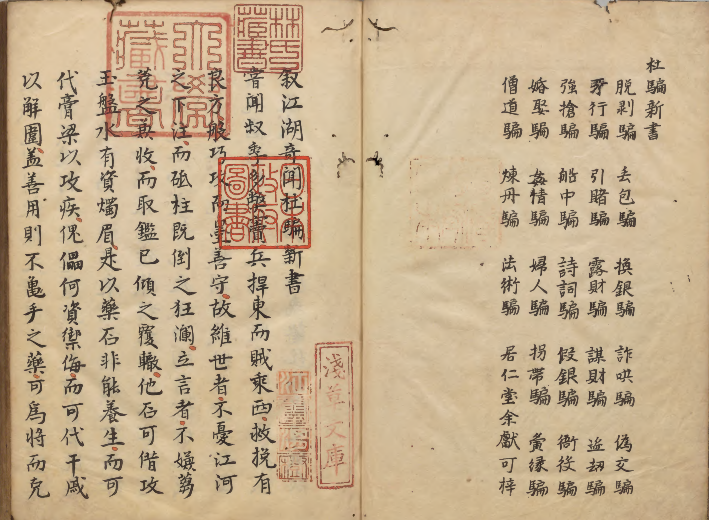 杜騙新書
脫剥騙 丟包騙 換銀騙 詐哄騙 偽交騙
牙行騙 引賭騙 露財騙 謀財騙 盜劫騙
強搶騙 船中騙 詩詞騙 假銀騙 衙役騙
婚娶騙 姦情騙 婦人騙 拐帶騙 夤緣騙
僧道騙 煉丹騙 法術騙 居仁堂余獻可梓
叙江湖奇聞杜騙新書
昔聞叔季多釁兵捍東而賊乘西救捝有
良方般巧攻而墨善守故維世者不憂江河
之下注而砥柱既倒之狂瀾立言者不嫌蒭
蕘之兼收而取鑑已傾之覆轍他石可借攻
玉盤水有資燭眉是以藥石非能養生而可
代膏梁以攻疾傀儡何資禦侮而可代干戚
以解圍盖善用則不龜手之藥可爲將而克
林氏藏書
淺草文庫